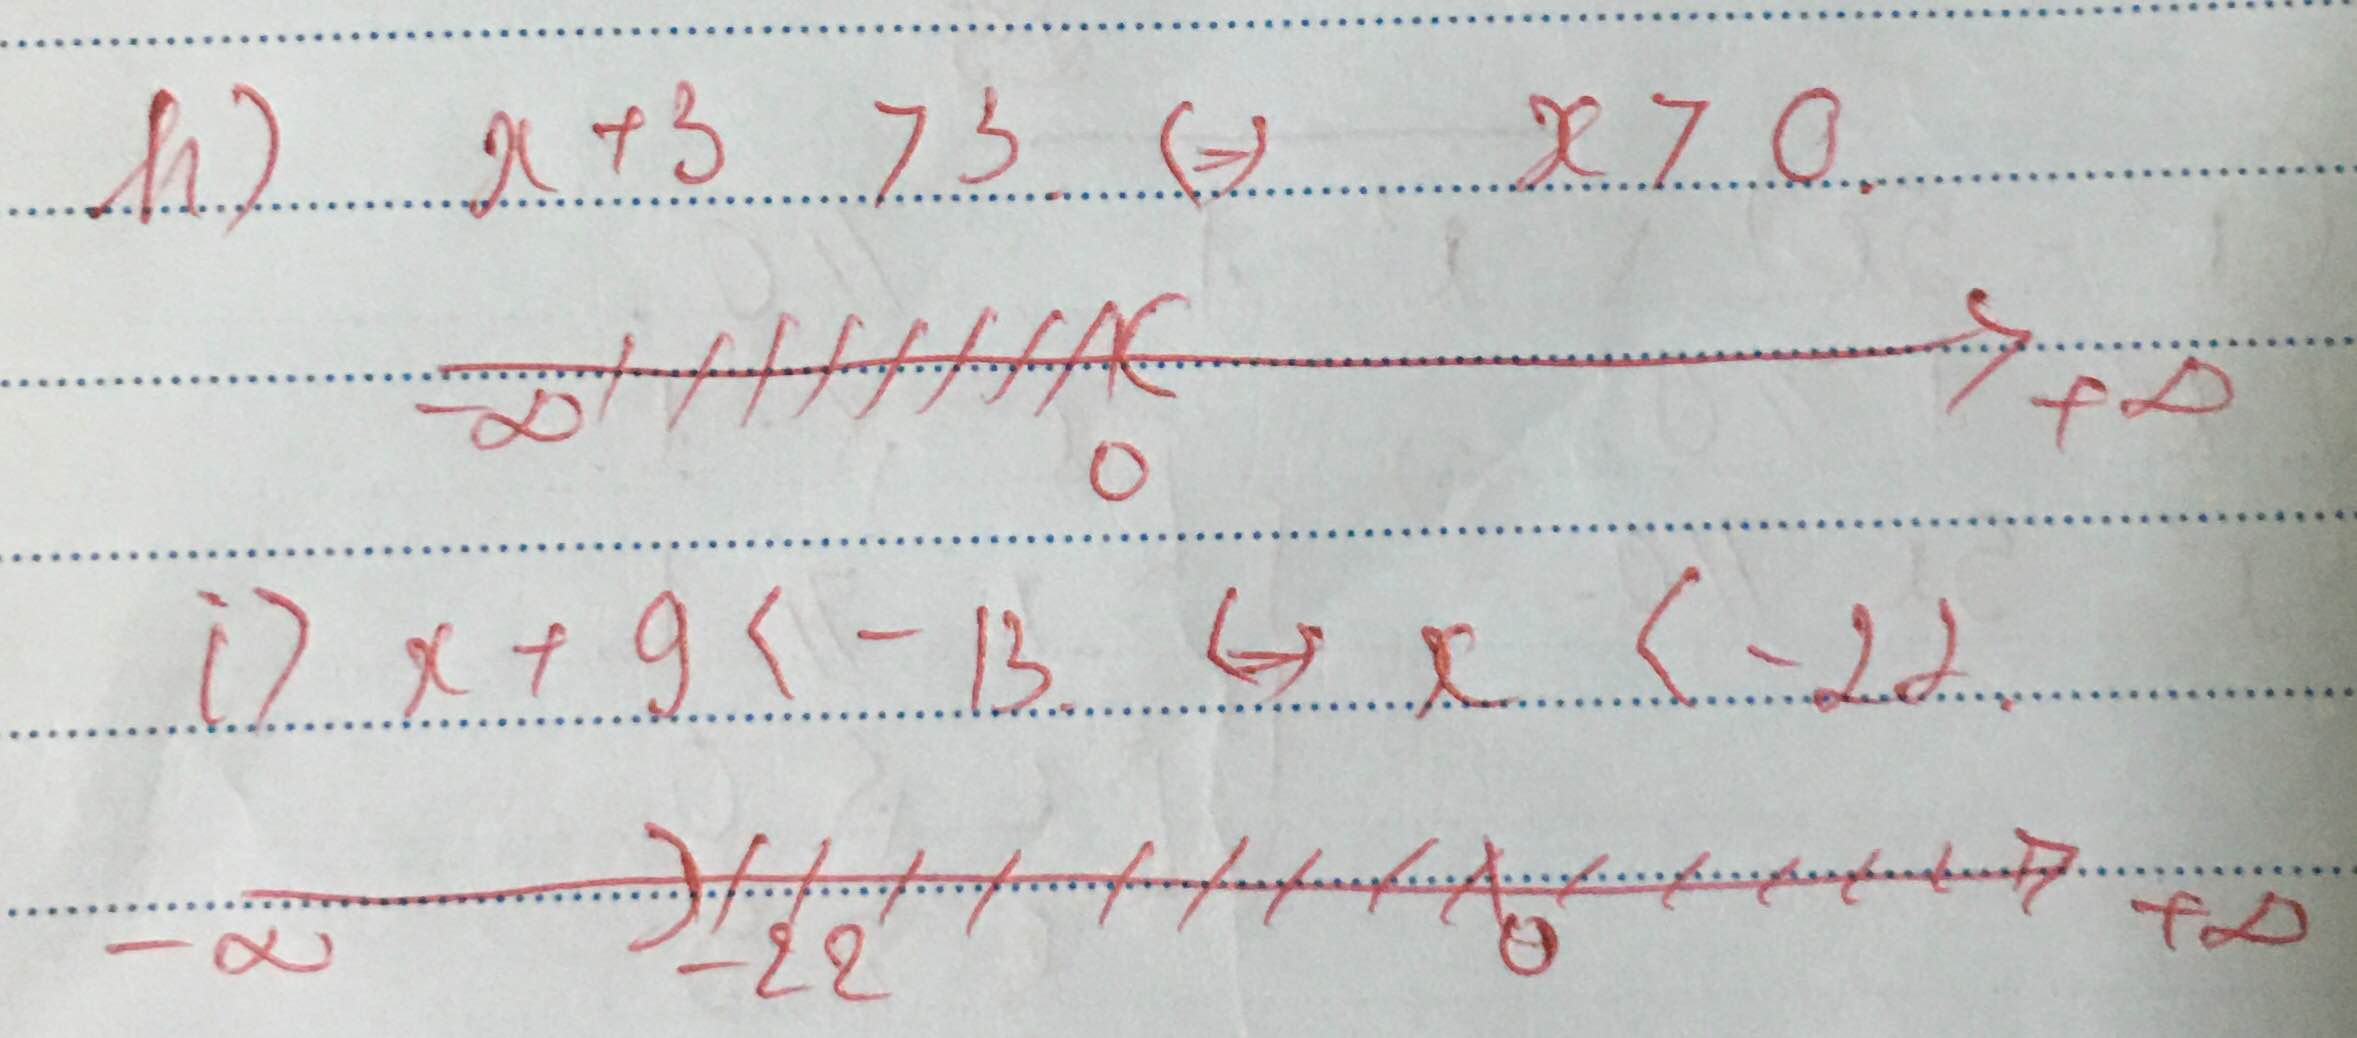 h) x + 3 > 3. <=> x > 0.
-∞ 0 +∞
i) x + 9 < - 13. <=> x < -22.
-∞ -22 0 +∞